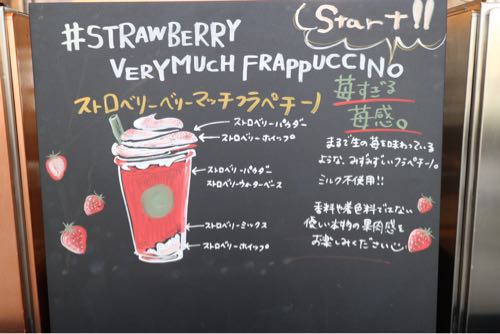 #STRAWBERRY
VERYMUCH FRAPPUCCINO
Start!!
ストロベリーベリーマッチフラペチーノ
苺すぎる
苺感。
ストロベリーパウダー
ストロベリーホイップ
ストロベリーパウダー
ストロベリーウォーターベース
ストロベリーミックス
ストロベリーホイップ
まるで生の苺を味わっている
ような、みずみずしいフラペチーノ。
ミルク不使用!!
香料や着色料ではない
優しい本物の果肉感を
お楽しみください